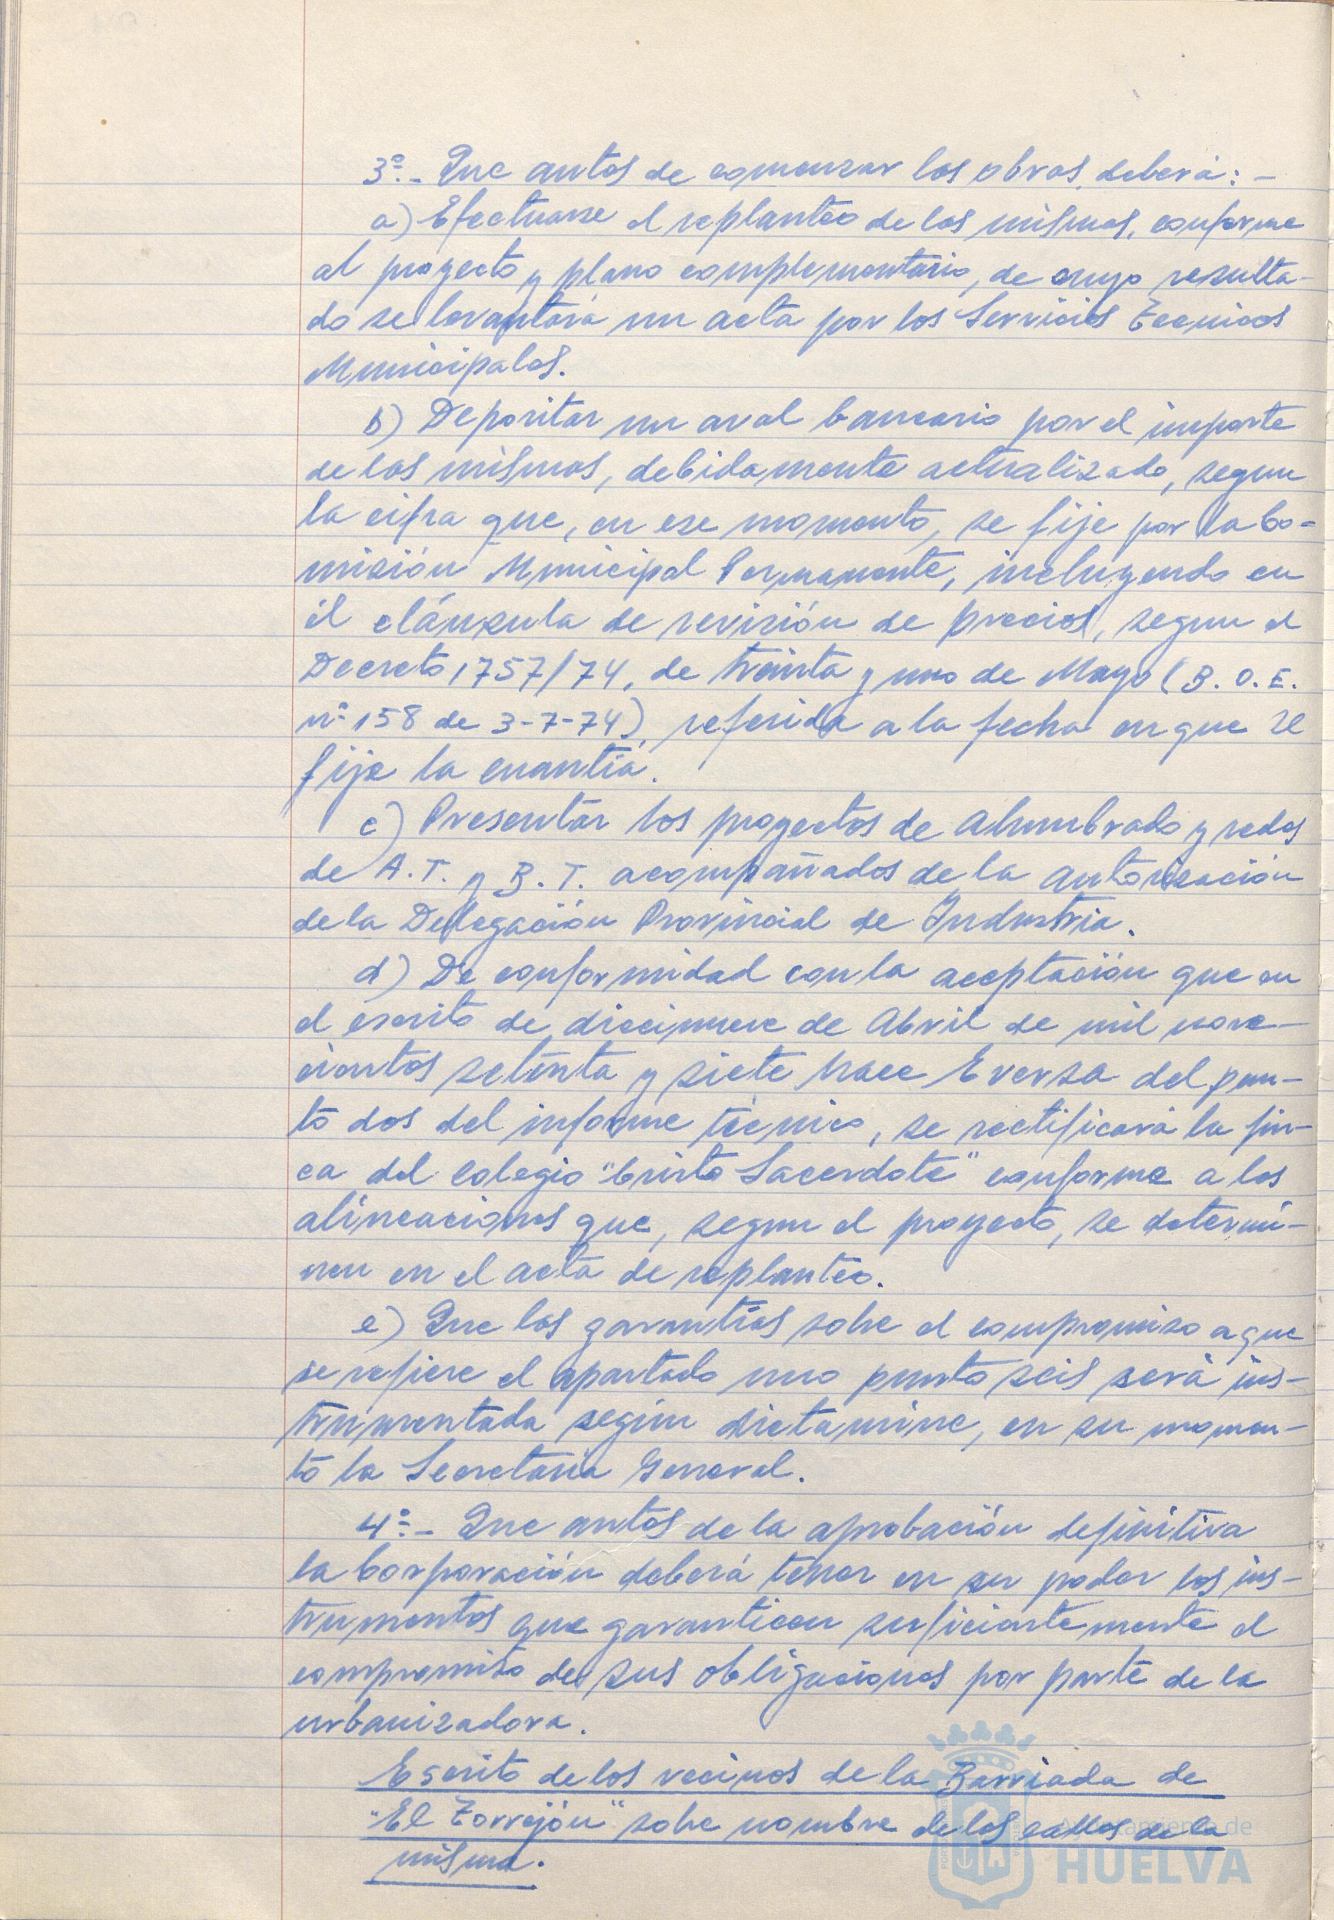 3º.- Que antes de comenzar las obras, deberá: -
a) Efectuarse el replanteo de las mismas, conforme
al proyecto y plano complementario, de cuyo resulta-
do se levantará un acta por los Servicios Técnicos
Municipales.
b) Depositar un aval bancario por el importe
de las mismas, debidamente actualizado, segun
la cifra que, en ese momento, se fije por la Co-
misión Municipal Permanente, incluyendo en
él cláusula de revisión de precios, segun el
Decreto 1757/74, de treinta y uno de Mayo (B.O.E.
nº 158 de 3-7-74), referida a la fecha en que se
fije la cuantía.
c) Presentar los proyectos de Alumbrado y redes
de A.T. y B.T. acompañados de la autorización
de la Delegación Provincial de Industria.
d) De conformidad con la aceptación que en
el escrito de diecinueve de Abril de mil nove-
cientos setenta y siete hace Eversa del pun-
to dos del informe técnico, se rectificará la fin-
ca del Colegio "Cristo Sacerdote" conforme a las
alineaciones que, segun el proyecto, se determi-
nen en el acta de replanteo.
e) Que las garantías sobre el compromiso a que
se refiere el apartado uno punto seis será ins-
trumentada según dictamine, en su momen-
to la Secretaría General.
4º.- Que antes de la aprobación definitiva
la Corporación deberá tener en su poder los ins-
trumentos que garanticen suficientemente el
compromiso de sus obligaciones por parte de la
urbanizadora.
Escrito de los vecinos de la Barriada de
"El Torrejón" sobre nombre de las calles de la
misma.
Ayuntamiento de
HUELVA